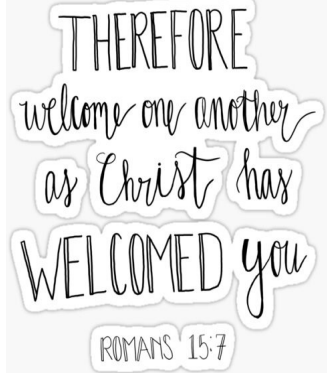 THEREFORE
welcome one another
as Christ has
WELCOMED you
ROMANS 15:7